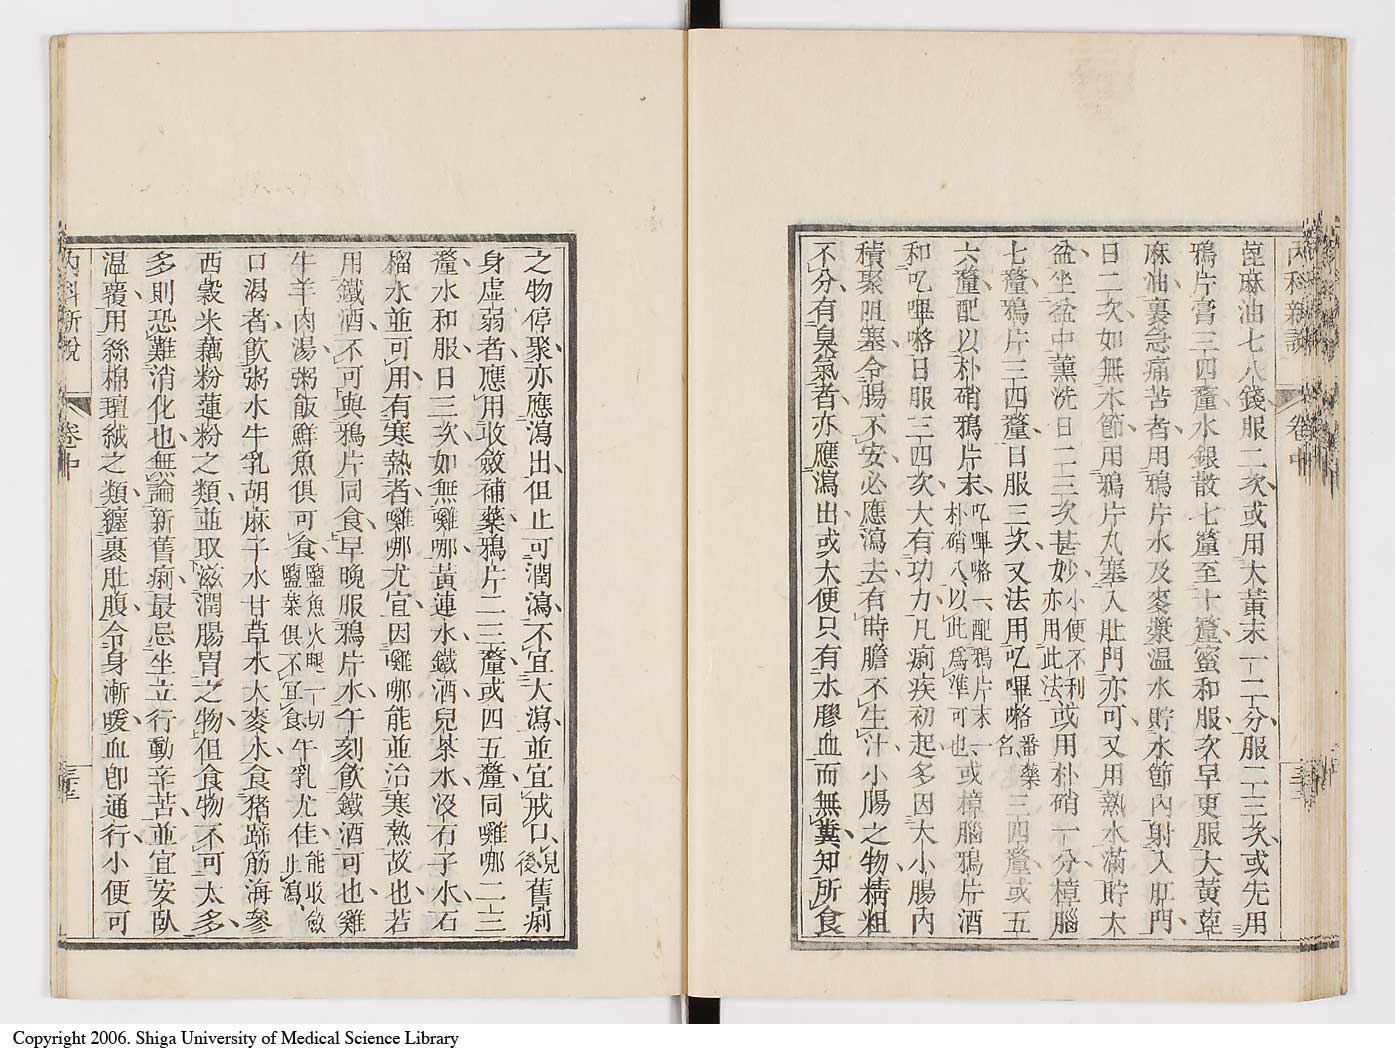 內科新說 卷中 三十二
蓖麻油七八錢服二次或用大黃末一二分服二三次或先用
鴉片膏三四釐水銀散七釐至十釐蜜和服次早更服大黃萆
麻油裏急痛苦者用鴉片水及麥漿溫水貯水節內射入肛門
日二次如無水節用鴉片丸塞入肚門亦可又用熱水滿貯木
盆坐盆中薰洗日二三次甚妙小便不利亦用此法或用朴硝一分樟腦
七釐鴉片三四釐日服三次又法用叱嗶咯番藥名三四釐或五
六釐配以朴硝鴉片末叱嗶咯一配鴉片末一朴硝八以此為準可也或樟腦鴉片酒
和叱嗶咯日服三四次大有功力凡痢疾初起多因大小腸內
積聚阻塞令腸不安必應瀉去有時膽不生汁小腸之物精粗
不分有臭氣者亦應瀉出或大便只有水膠血而無糞知所食
之物停聚亦應瀉出但止可潤瀉不宜大瀉並宜戒口後舊痢
身虛弱者應用收斂補藥鴉片二三釐或四五釐同囄哪二三
釐水和服日三次如無囄哪黃連水鐵酒兒茶水沒石子水石
榴水並可用有寒熱者囄哪尤宜因囄哪能並治寒熱故也若
用鐵酒不可與鴉片同食早晚服鴉片水午刻飲鐵酒可也雞
牛羊肉湯粥飯鮮魚俱可食鹽魚火腿一切鹽菜俱不宜食牛乳尤佳能收斂止瀉
口渴者飲粥水牛乳胡麻子水甘草水大麥水食猪蹄筋海參
西穀米藕粉蓮粉之類並取滋潤腸胃之物但食物不可太多
多則恐難消化也無論新舊痢最忌坐立行動辛苦並宜安臥
溫覆用絲棉羶絨之類纏裹肚腹令身漸暖血即通行小便可
內科新說 卷中 三十二